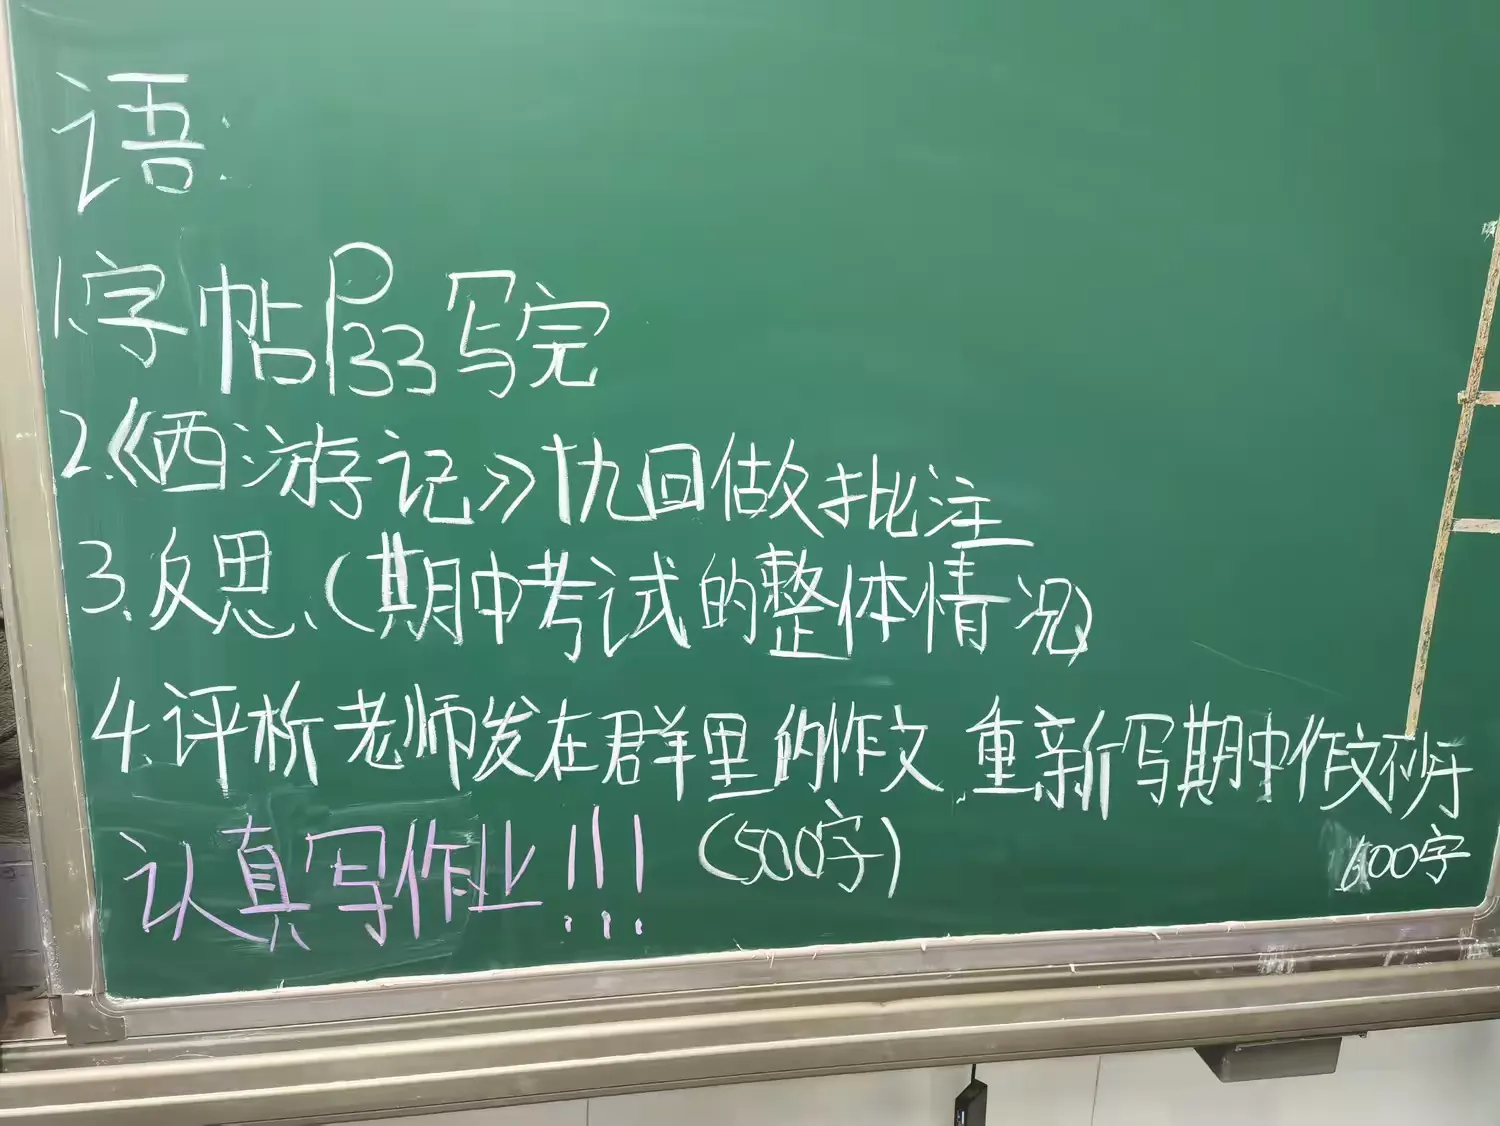 语:
1.字帖P33写完
2.《西游记》十九回做批注
3.反思、(期中考试的整体情况)
4.评析老师发在群里的作文 重新写期中作文不少于
(500字)
600字
认真写作业!!!